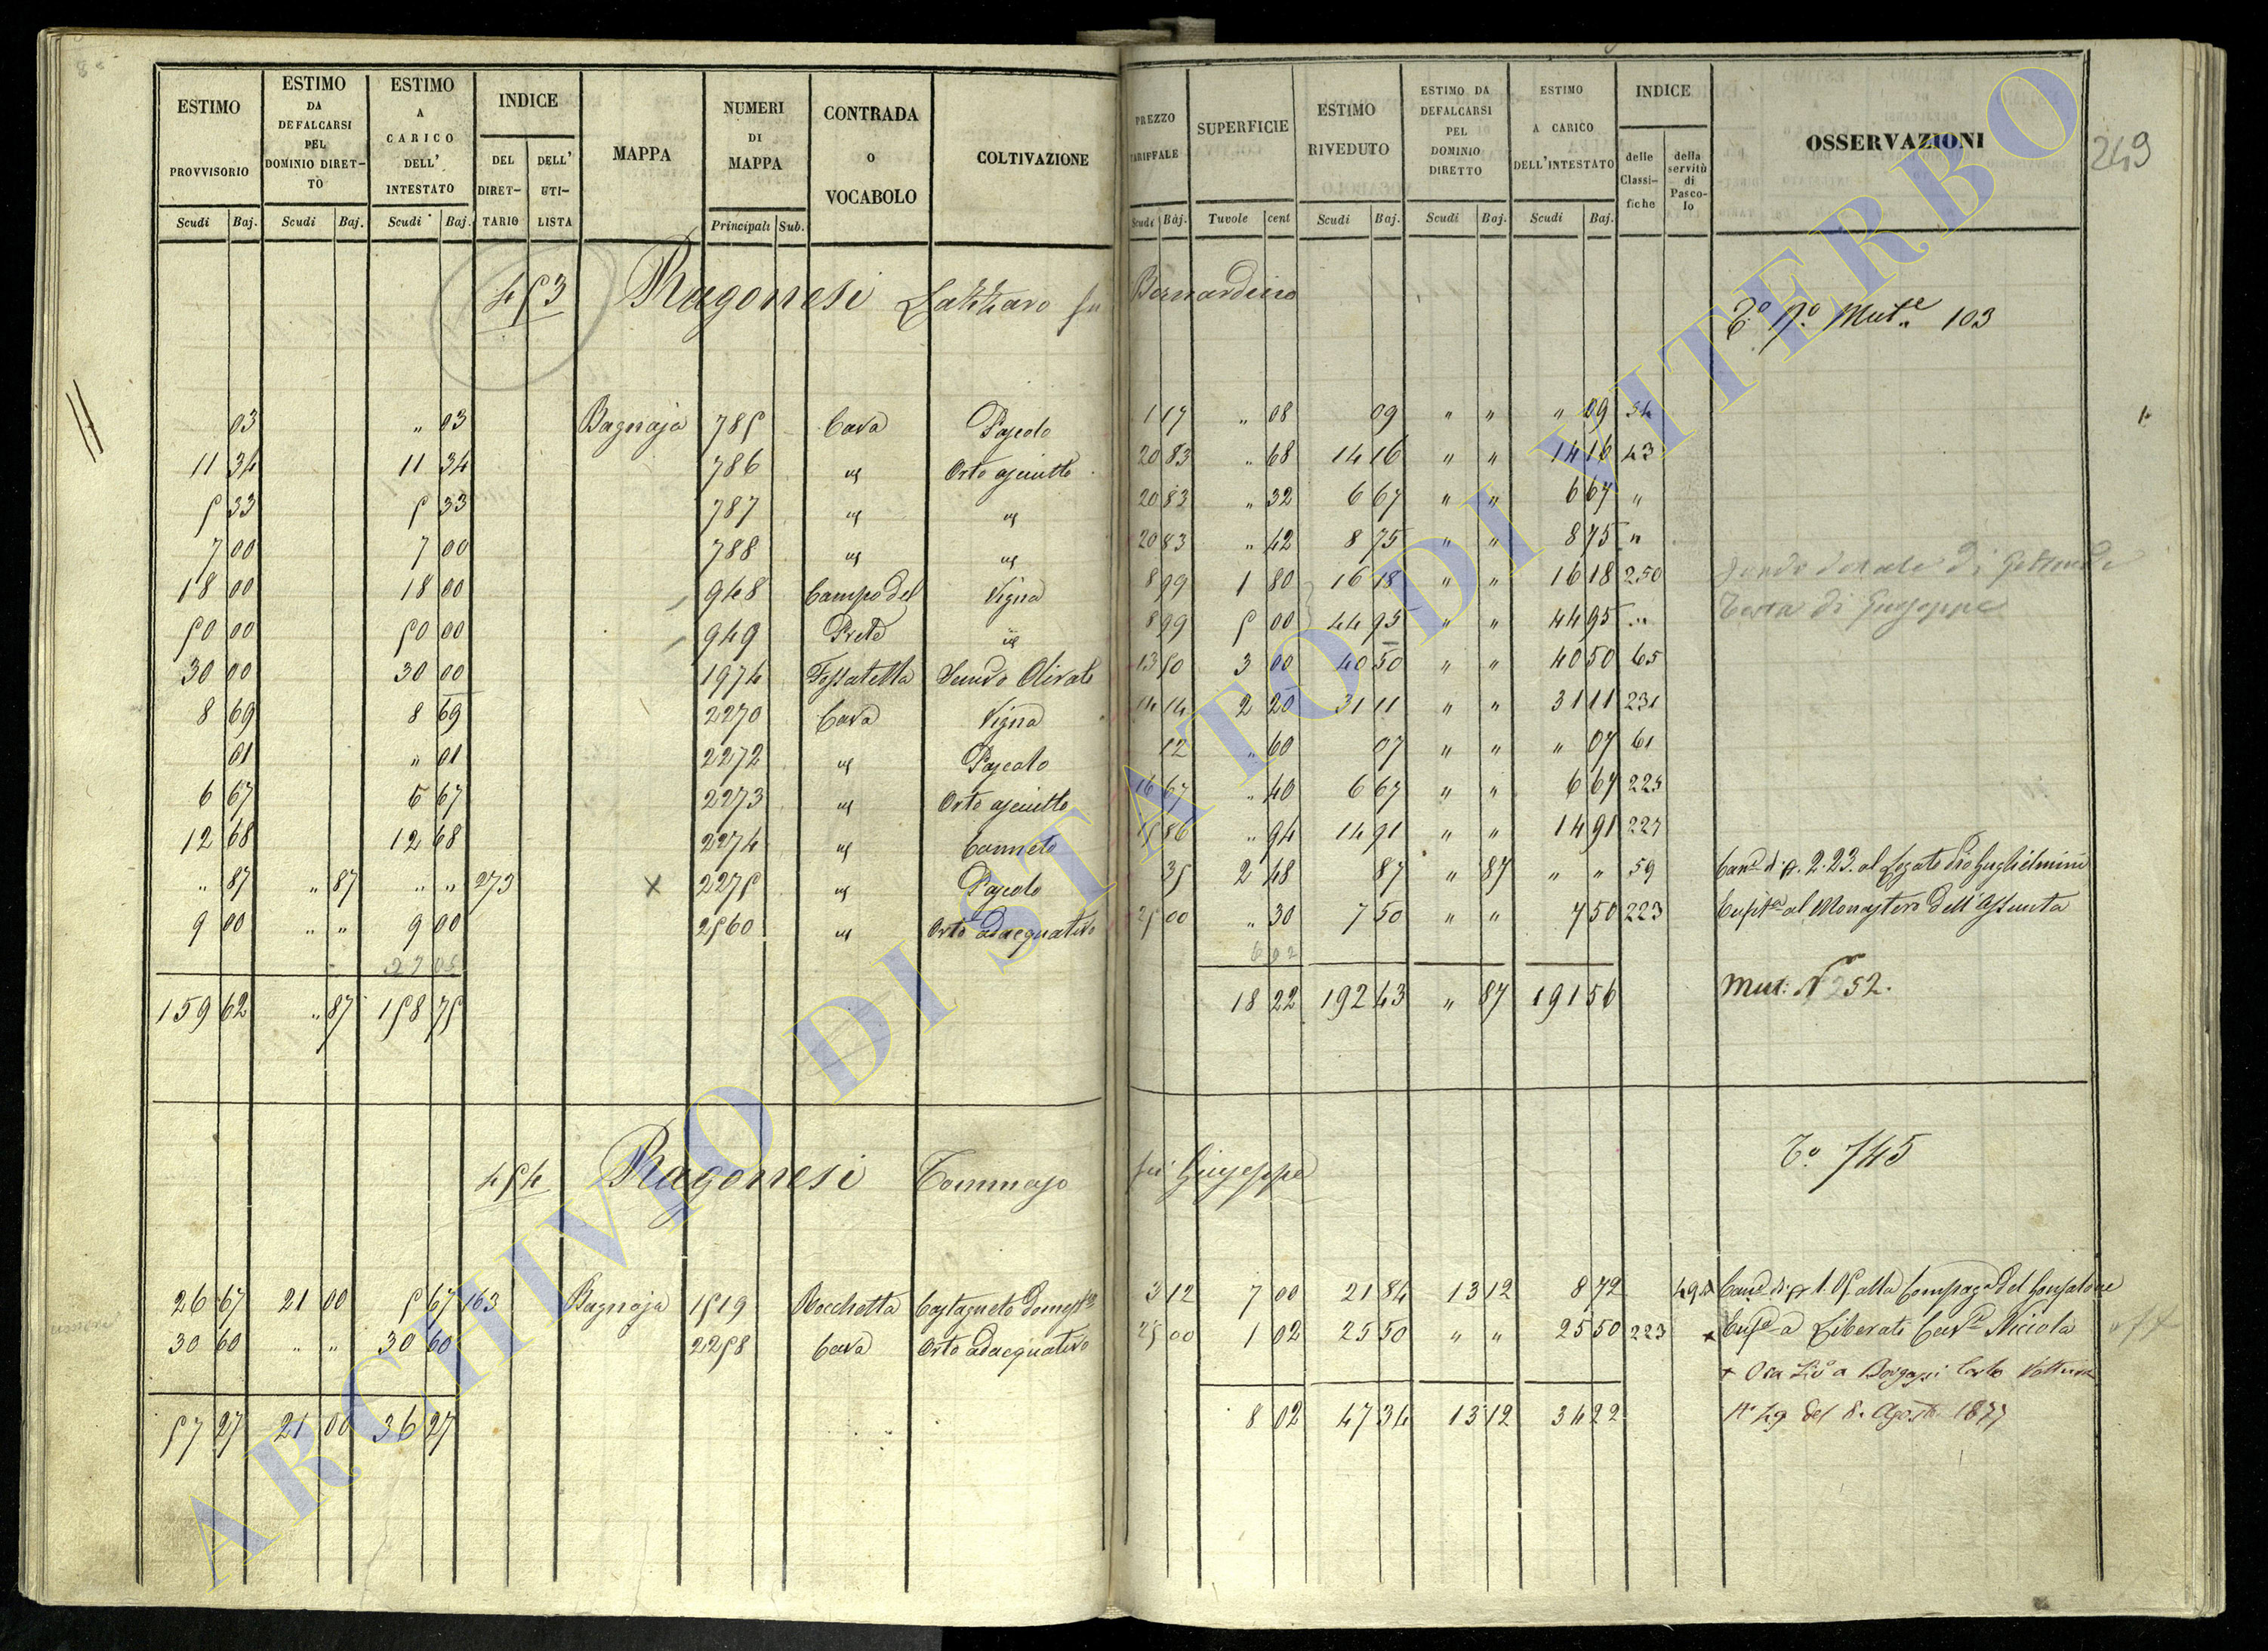 ESTIMO PROVVISORIO Scudi Baj.
ESTIMO DA DEFALCARSI PEL DOMINIO DIRETTO Scudi Baj.
ESTIMO A CARICO DELL' INTESTATO Scudi Baj.
INDICE DEL DIRETTARIO DELL' UTILISTA
MAPPA
NUMERI DI MAPPA Principali Sub.
CONTRADA O VOCABOLO
COLTIVAZIONE
PREZZO TARIFFALE Scudi Baj.
SUPERFICIE Tavole cent
ESTIMO RIVEDUTO Scudi Baj.
ESTIMO DA DEFALCARSI PEL DOMINIO DIRETTO Scudi Baj.
ESTIMO A CARICO DELL'INTESTATO Scudi Baj.
INDICE delle Classifiche della servitù di Pascolo
OSSERVAZIONI
249
453 Ragonesi Lazzaro fu Bernardino
To 19o Mute 103
03 " 03 Bagnaja 785 Cava Pascolo 1 17 " 08 09 " " " 09 34
11 34 11 34 786 " Orto asciutto 20 83 " 68 14 16 " " 14 16 43
5 33 5 33 787 " " 20 83 " 32 6 67 " " 6 67 "
7 00 7 00 788 " " 20 83 " 42 8 75 " " 8 75 "
18 00 18 00 948 Campo del Vigna 8 99 1 80 16 18 " " 16 18 250
50 00 50 00 949 Prete " 8 99 5 00 44 95 " " 44 95 "
di Giuseppe
30 00 30 00 1974 Fossatella Olivato 13 50 3 00 40 50 " " 40 50 65
8 69 8 69 2270 Cava Vigna 14 14 2 20 31 11 " " 31 11 231
01 " 01 2272 " Pascolo 12 " 60 07 " " " 07 61
6 67 6 67 2273 " Orto asciutto 16 67 " 40 6 67 " " 6 67 225
12 68 12 68 2274 " Canneto 15 86 " 94 14 91 " " 14 91 227
" 87 " 87 " " 273 x 2275 " Pascolo 35 2 48 87 " 87 " " 59 Cane di 2.23. al Legato Pio Guglielmini
9 00 " " 9 00 2560 " Orto adacquativo 25 00 " 30 7 50 " " 7 50 223 al Monastero dell'Assunta
27 05 6 02
159 62 " 87 158 75 18 22 192 43 " 87 191 56 Mut: N 252.
454 Ragonesi Tommaso fu Giuseppe
To 745
26 67 21 00 5 67 163 Bagnaja 1519 Rocchetta Castagneto Domestco 3 12 7 00 21 84 13 12 8 72 49 Cane di 1.05 alla Compaga del Gonfalone
30 60 " " 30 60 2258 Cava Orto adacquativo 25 00 1 02 25 50 " " 25 50 223 x a Liberati Cave Niccola
+ Ora Carlo
57 27 21 00 36 27 8 02 47 34 13 12 34 22 No 49 del 8. Agosto 1877
ARCHIVIO DI STATO DI VITERBO